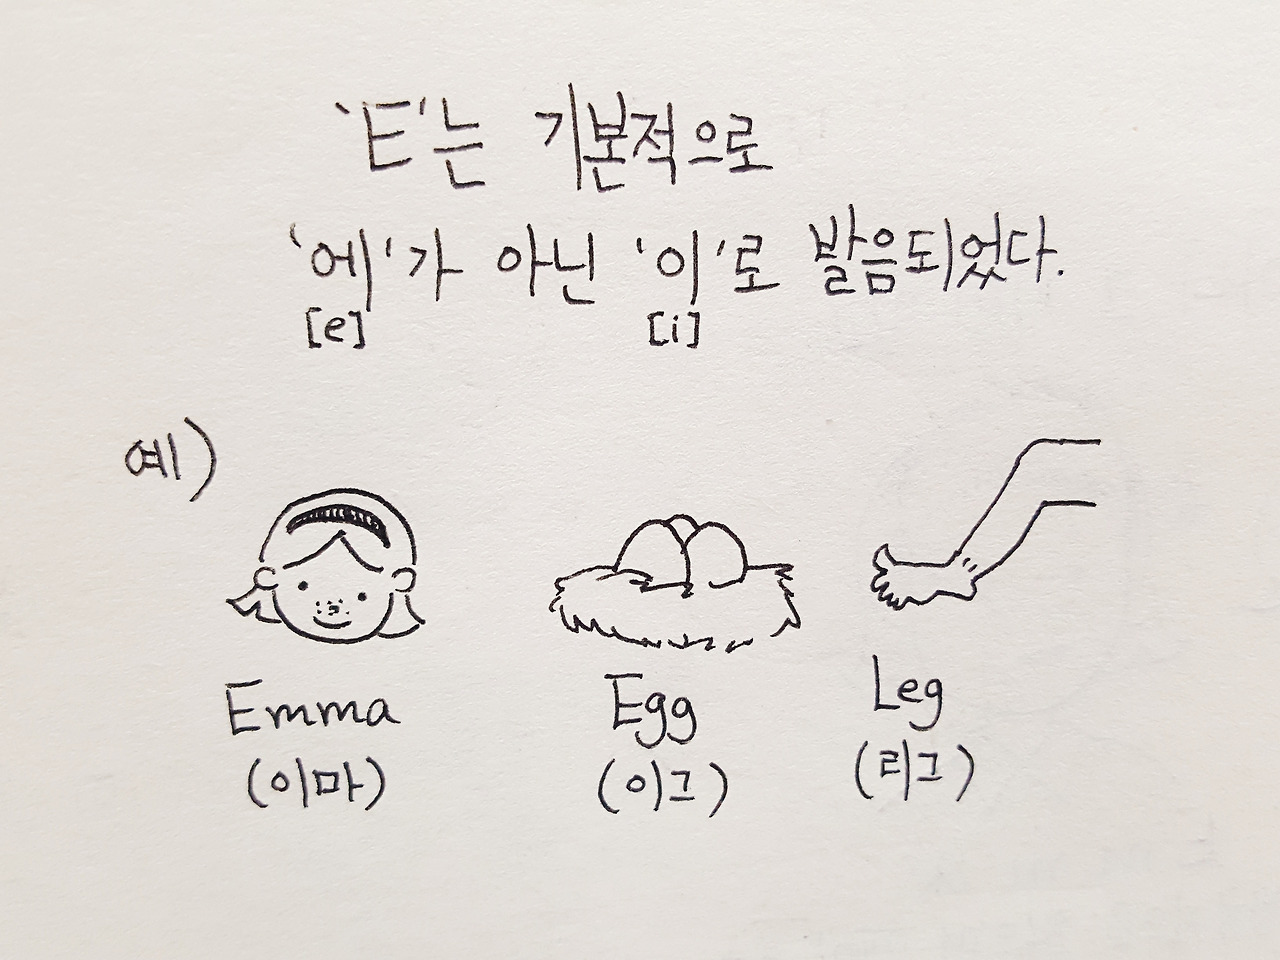 'E'는 기본적으로
'에'가 아닌 '이'로 발음되었다.
[e] [i]
예)
Emma Egg Leg
(이마) (이그) (리그)